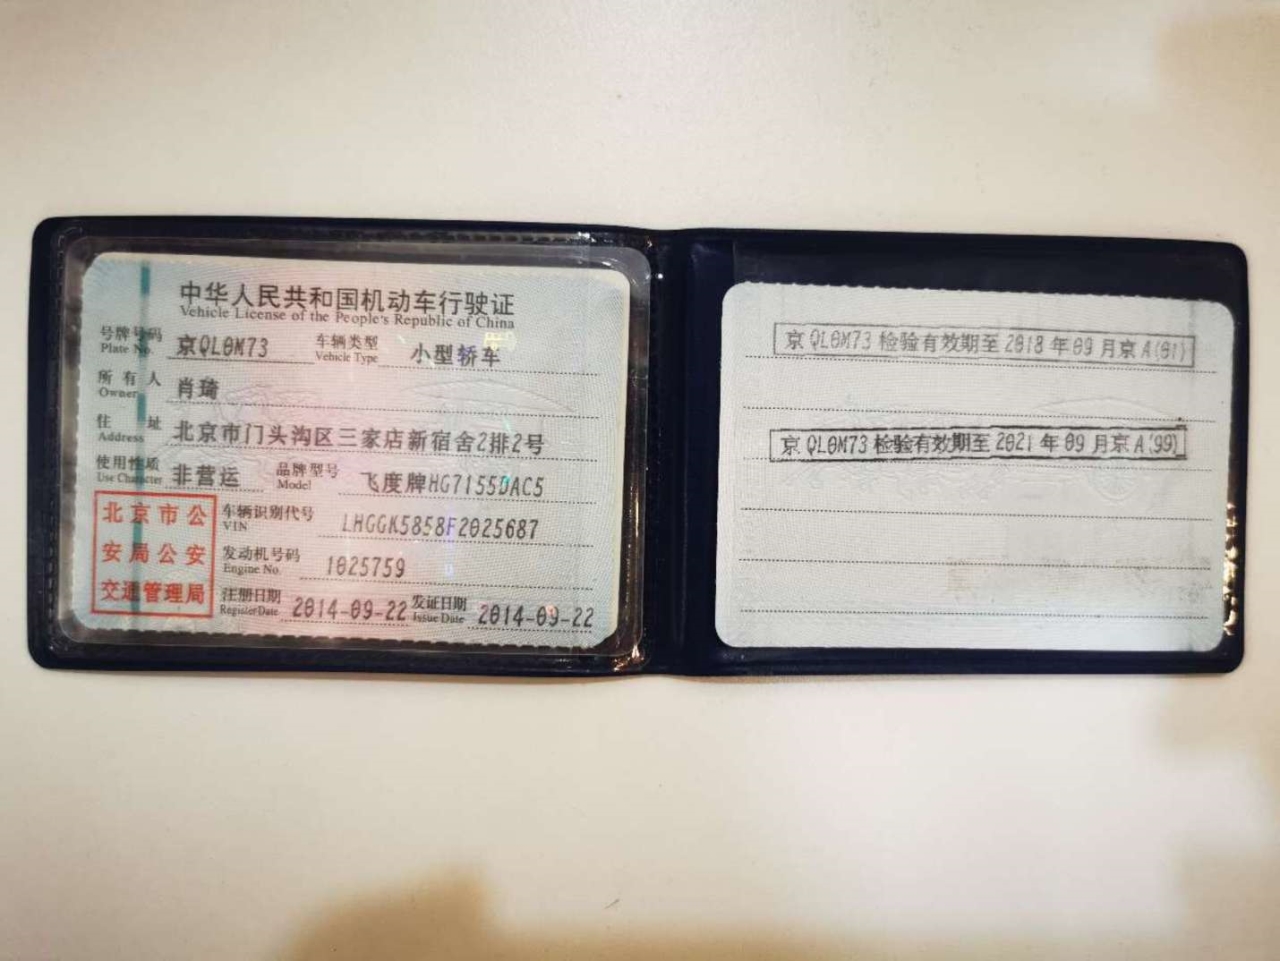 中华人民共和国机动车行驶证
Vehicle License of the People's Republic of China
号牌号码 京QL0M73 车辆类型 小型轿车
Plate No. Vehicle Type
所有人 肖琦
Owner
住址 北京市门头沟区三家店新宿舍2排2号
Address
使用性质 非营运 品牌型号 飞度牌HG7155DAC5
Use Character Model
北京市公安局公安交通管理局
车辆识别代号 LHGGK5858F2025687
VIN
发动机号码 1025759
Engine No.
注册日期 2014-09-22 发证日期 2014-09-22
Register Date Issue Date
京QL0M73 检验有效期至 2018 年 09 月京 A(01)
京QL0M73 检验有效期至 2021 年 09 月京 A(99)